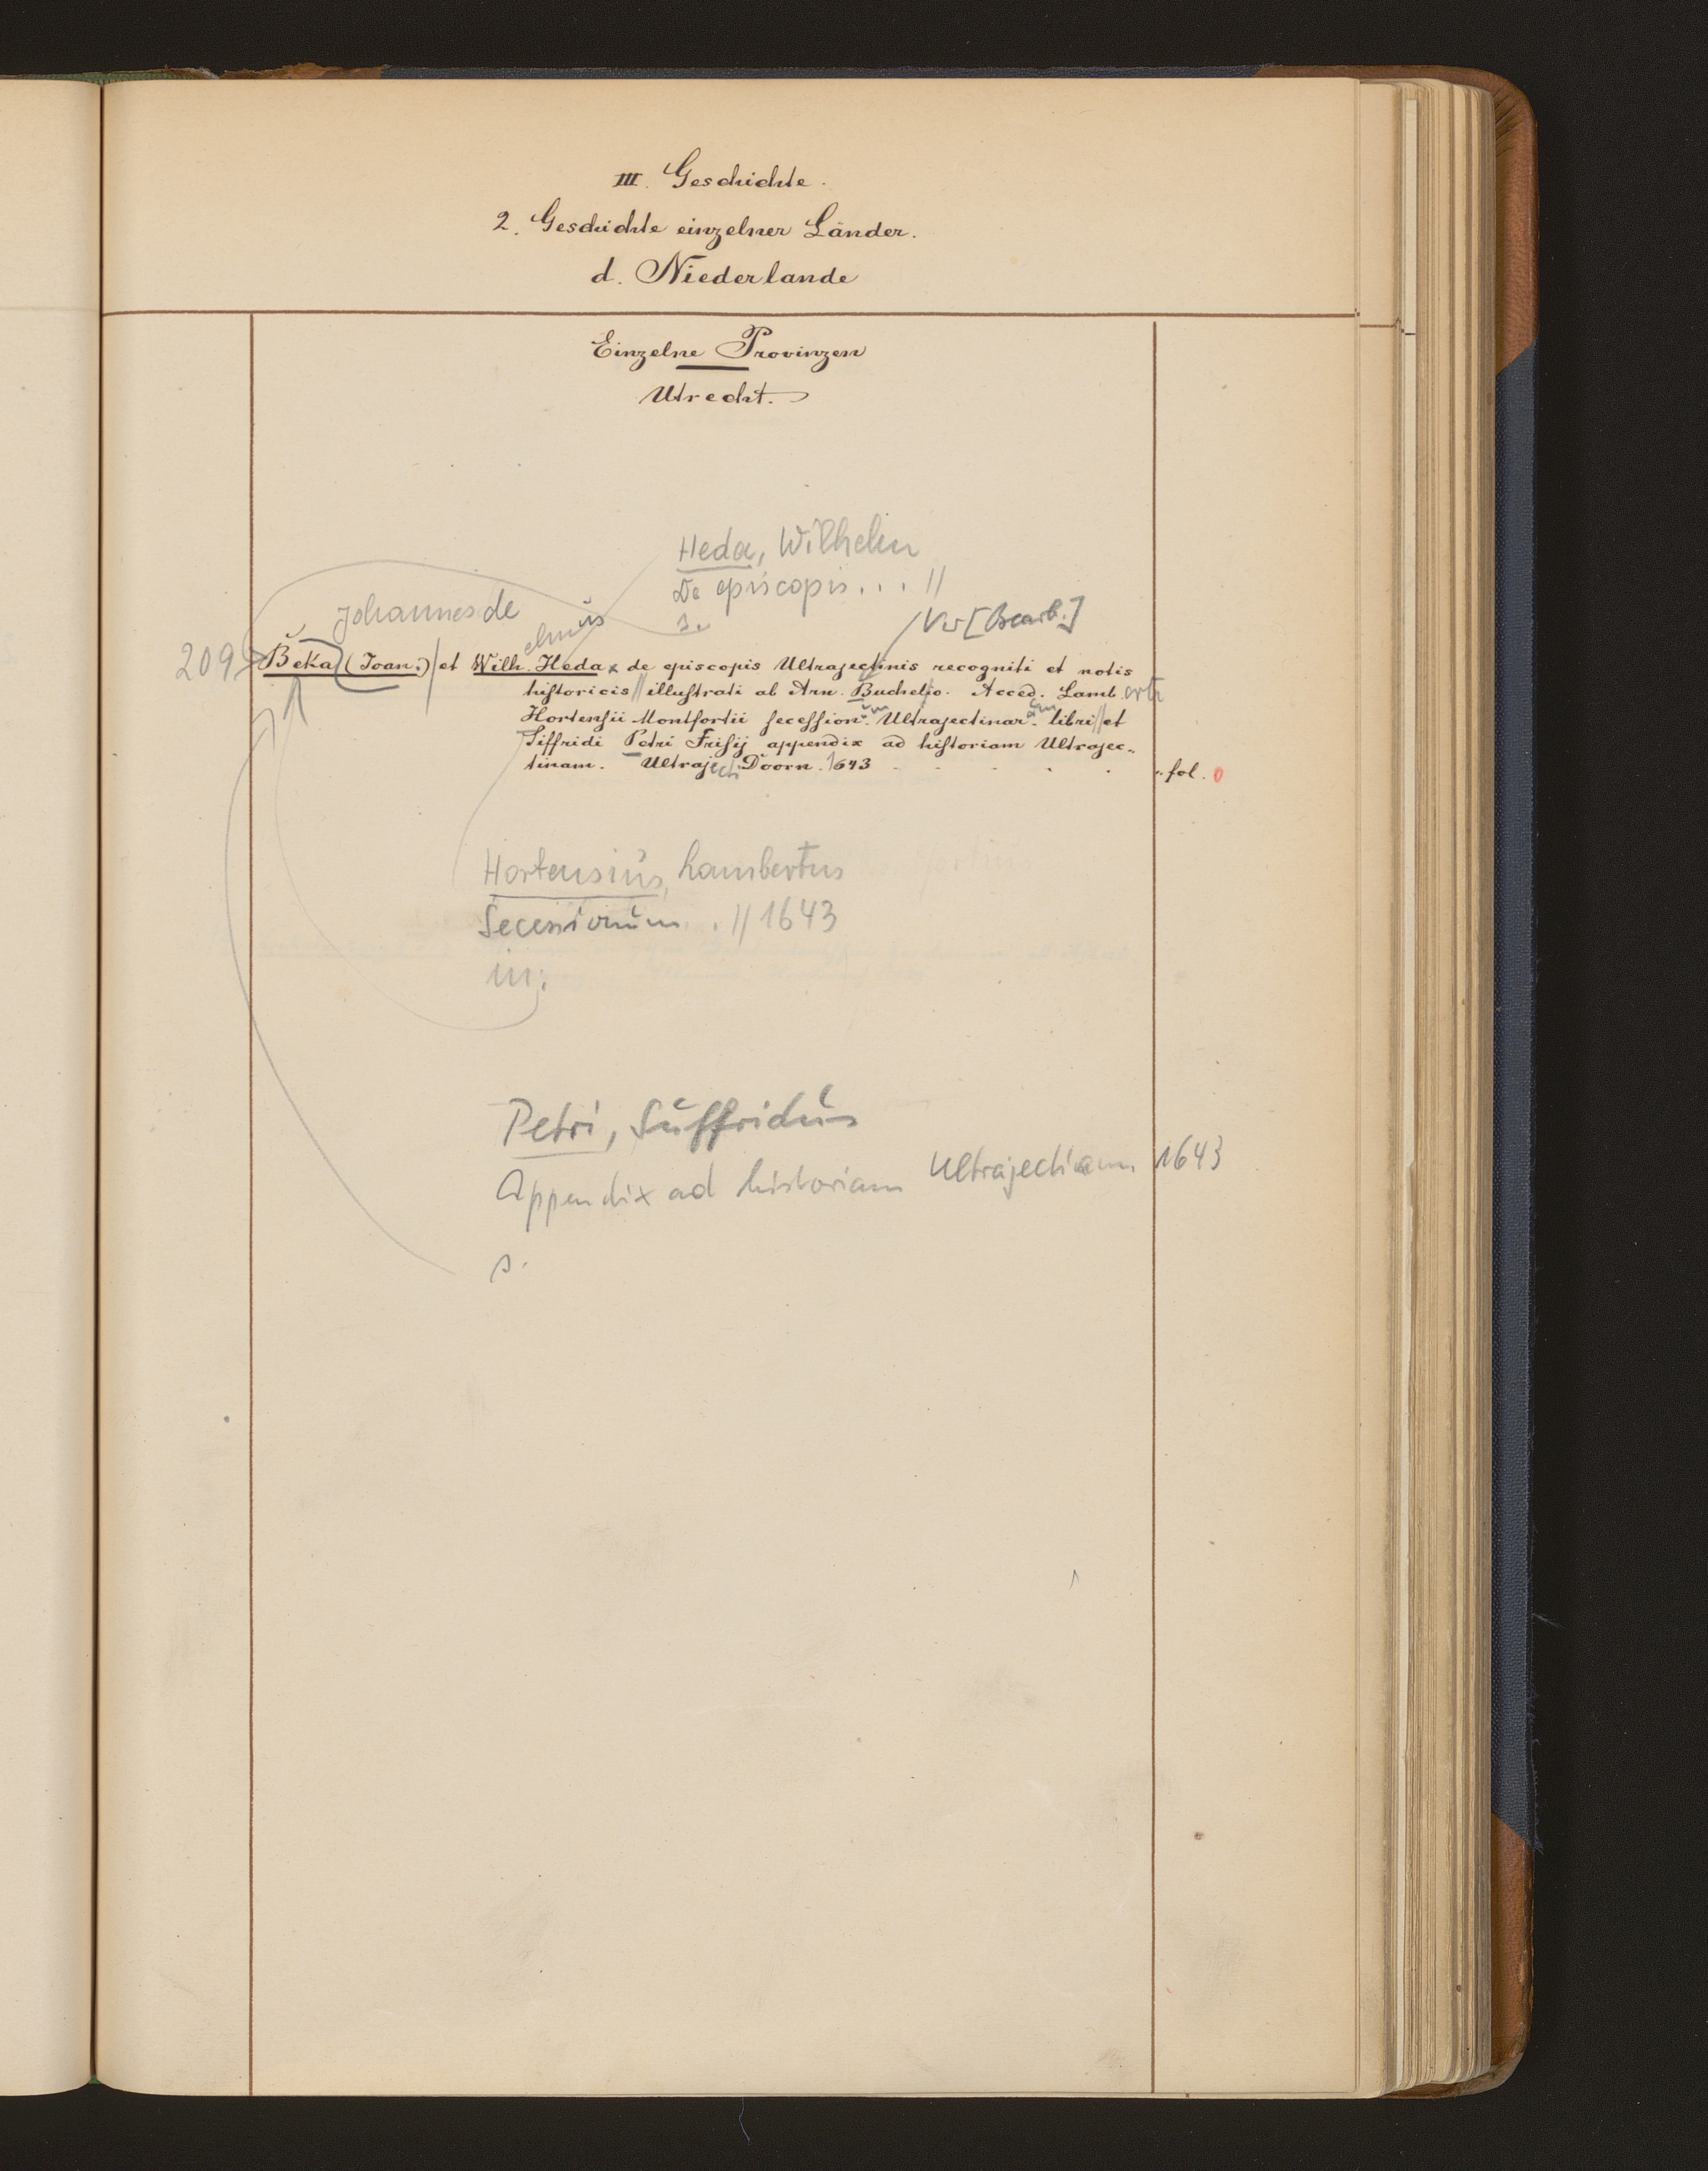 III. Geschichte.
2. Geschichte einzelner Länder.
d. Niederlande
Einzelne Provinzen
Utrecht.
Heda, Wilhelm
De episcopis... //
s.
Johannes de
elmus
/ Vw [Bearb.]
209
Beka (Joan.) et Wilh. Heda x de episcopis Ultrajectinis recogniti et notis
historicis // illustrati ab Arn. Buchelio. Acced. Lamb. erti
um
arum
Hortensii Montfortii secession. Ultrajectinar. libri // et
Siffridi Petri Frisij appendix ad historiam Ultrajec-
tinam. Ultrajecti Doorn. 1643 . . . . . " fol. 0
Hortensius, Lambertus
Secessionum . // 1643
in:
Petri, Suffridus
Appendix ad historiam Ultrajectinam 1643
s.